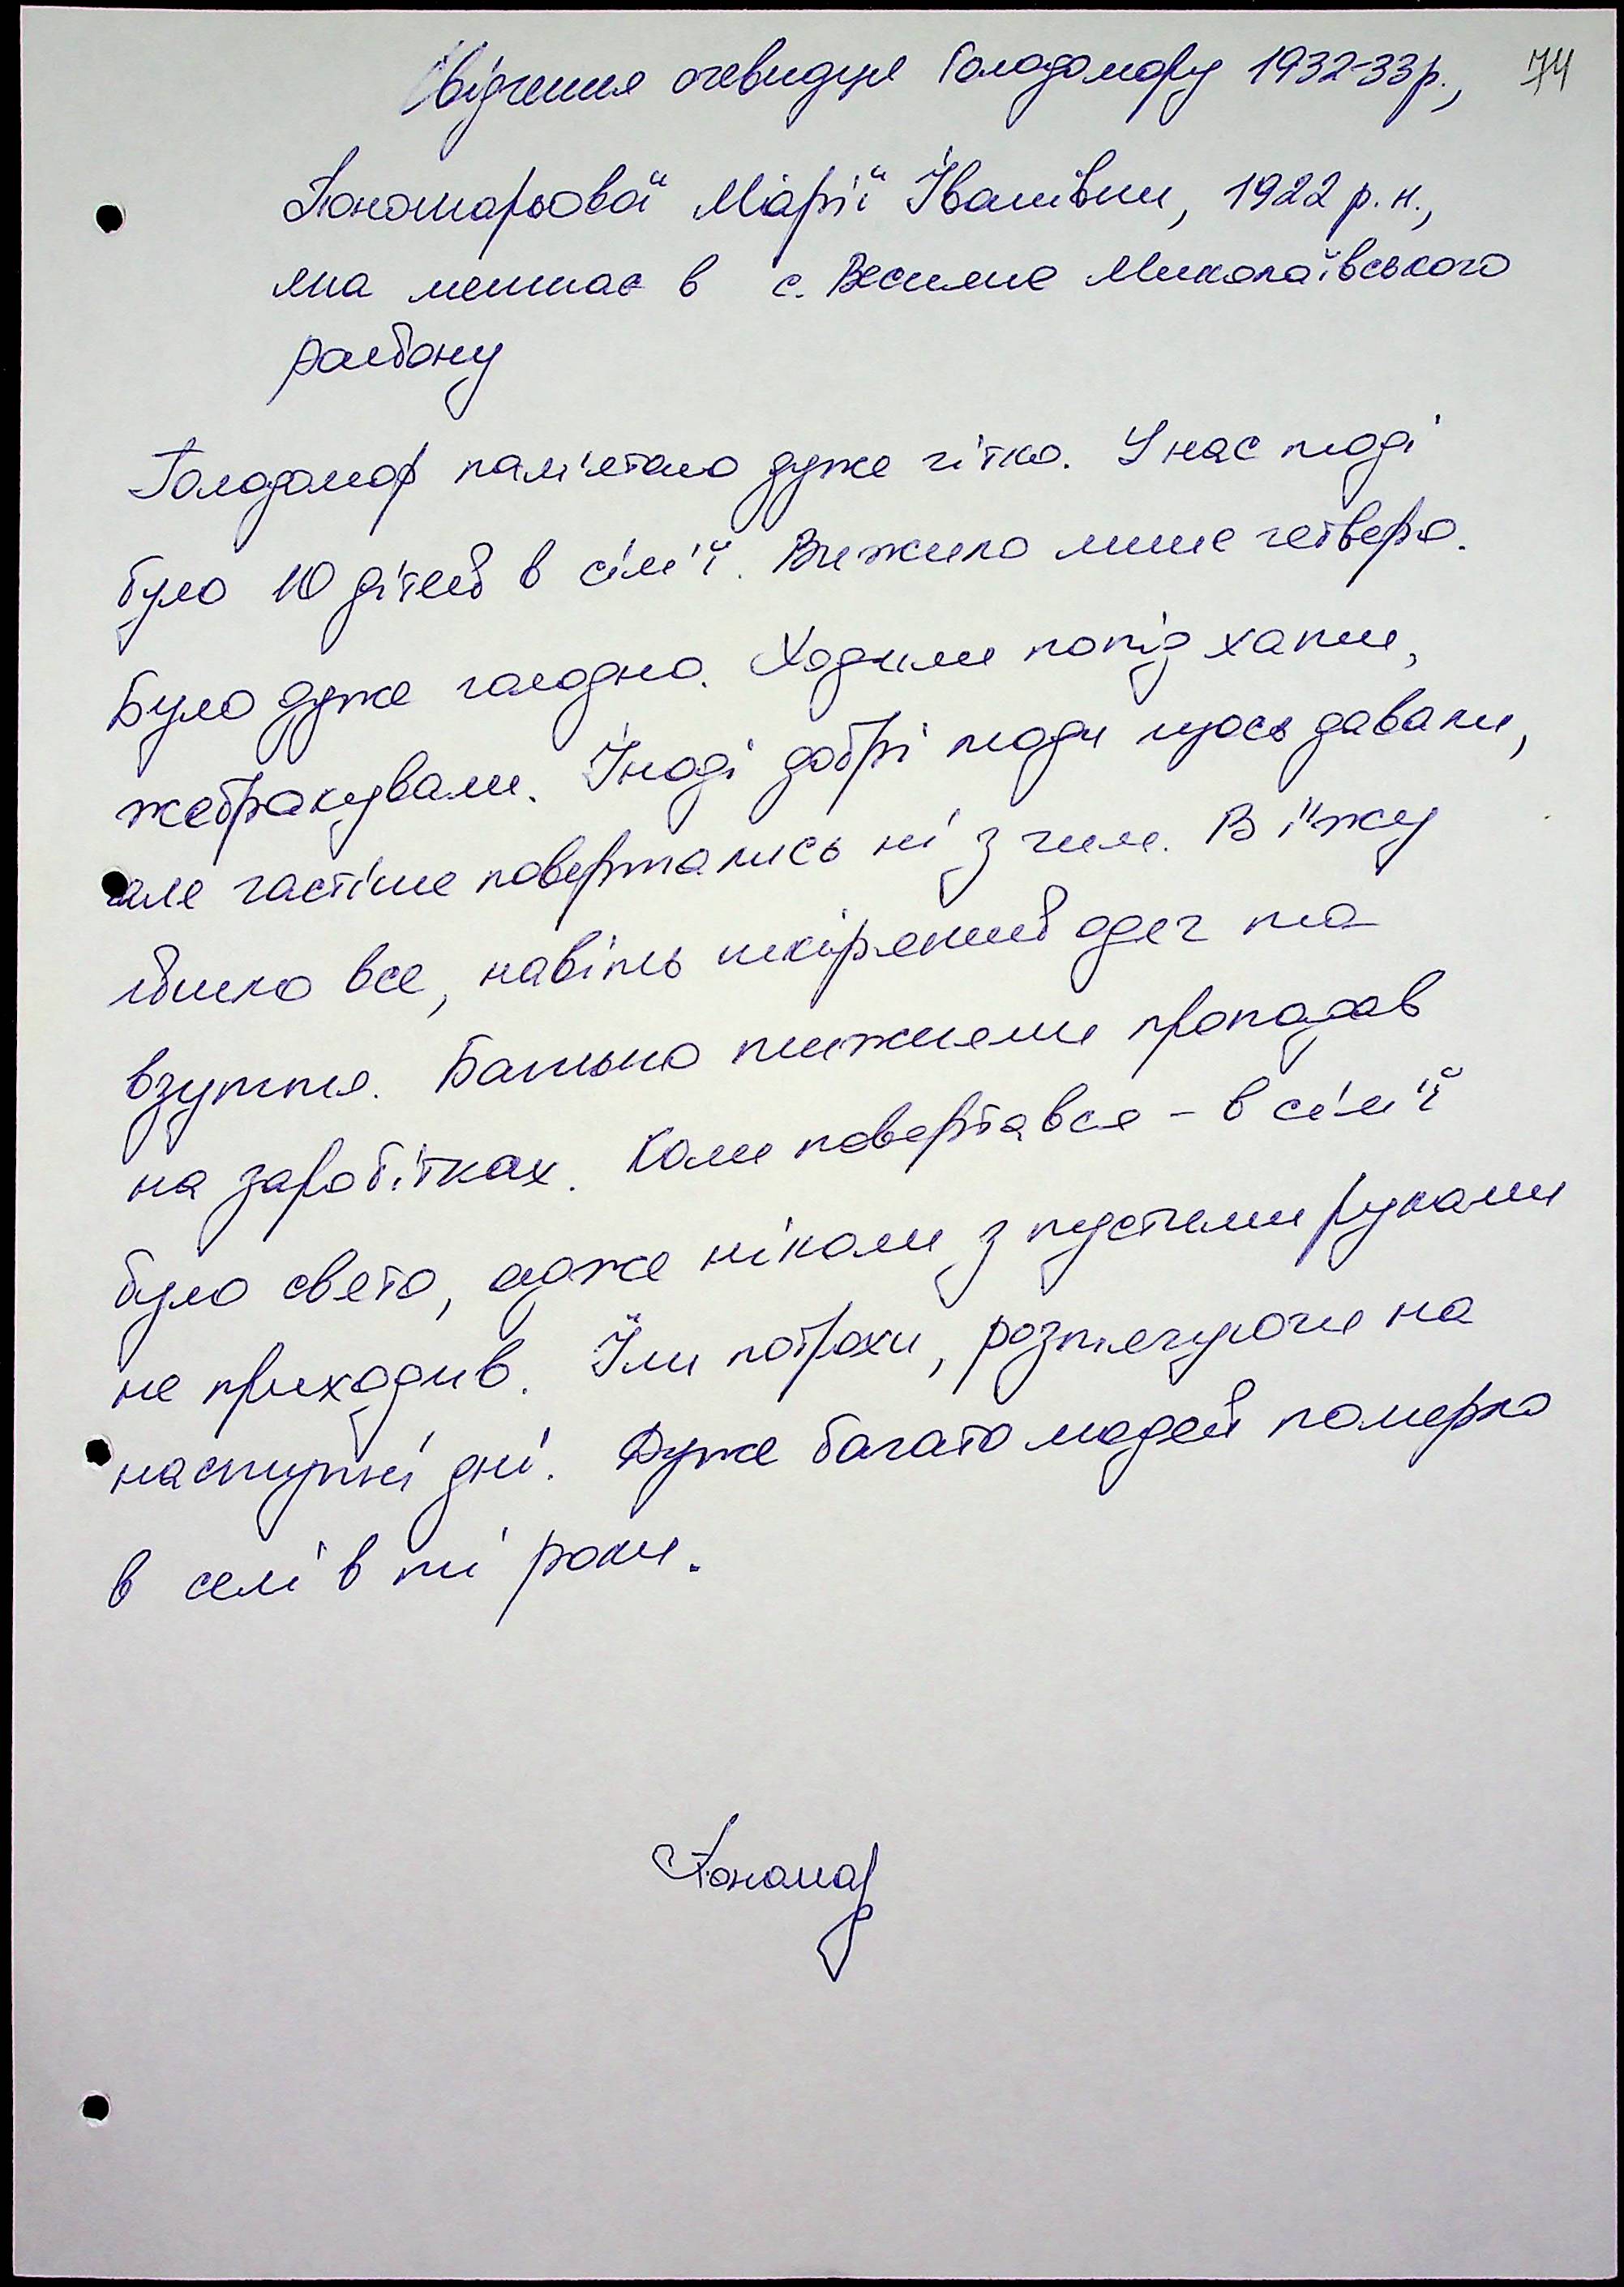 Свідчення очевидця Голодомору 1932-33р., 74
Пономарьової Марії Іванівни, 1922 р.н.,
яка мешкає в с. Весняне Миколаївського
району
Голодомор пам'ятаю дуже чітко. У нас тоді
було 10 дітей в сім'ї. Вижило лише четверо.
Було дуже голодно. Ходили попід хати,
жебракували. Іноді добрі люди щось давали,
але частіше повертались ні з чим. В їжу
йшло все, навіть шкіряний одяг та
взуття. Батько тижнями пропадав
на заробітках. Коли повертався - в сім'ї
було свято, адже ніколи з пустими руками
не приходив. Їли потрохи, розтягуючи на
наступні дні. Дуже багато людей померло
в селі в ті роки.
Пономар